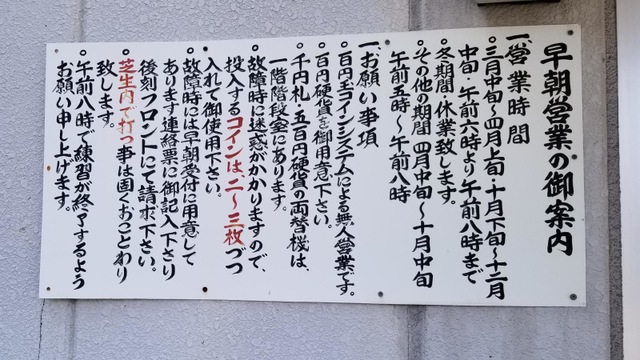 早朝営業の御案内
一、営業時間
○三月中旬〜四月上旬・十月下旬〜十二月
中旬・午前六時より午前八時まで
○冬期間・休業致します。
○その他の期間 四月中旬〜十月中旬
午前五時〜午前八時
一、お願い事項
○百円玉コインシステムによる無人営業です。
○百円硬貨を御用意下さい。
○千円札・五百円硬貨の両替機は、
一階階段室にあります。
○故障時に迷惑がかかりますので、
投入するコインは、二〜三枚づつ
入れて御使用下さい。
○故障時には早朝受付に用意して
あります連絡票に御記入下さり
後刻フロントにて請求下さい。
○芝生内で打つ事は固くおことわり
致します。
○午前八時で練習が終了するよう
お願い申し上げます。